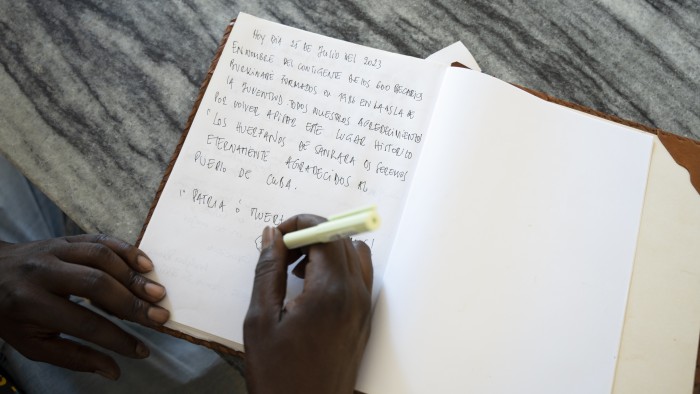 HOY DIA 25 DE JULIO DEL 2023
EN NOMBRE DEL CONTIGENTE DE LOS 600 BECARIOS
BURKINABE FORMADOS EN 1986 EN LA ISLA DE
LA JUVENTUD TODOS NUESTROS AGRADECIMIENTOS
POR VOLVER A PISAR ESTE LUGAR HISTORICO
"LOS HUERFANOS DE SANKARA OS SEREMOS
ETERNAMENTE AGRADECIDOS AL
PUEBLO DE CUBA.
PATRIA Ó MUERT